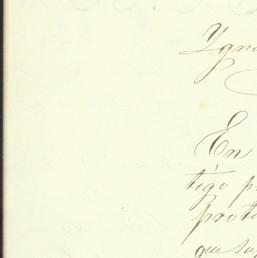 Ygna
En
tigo p
proto
que su